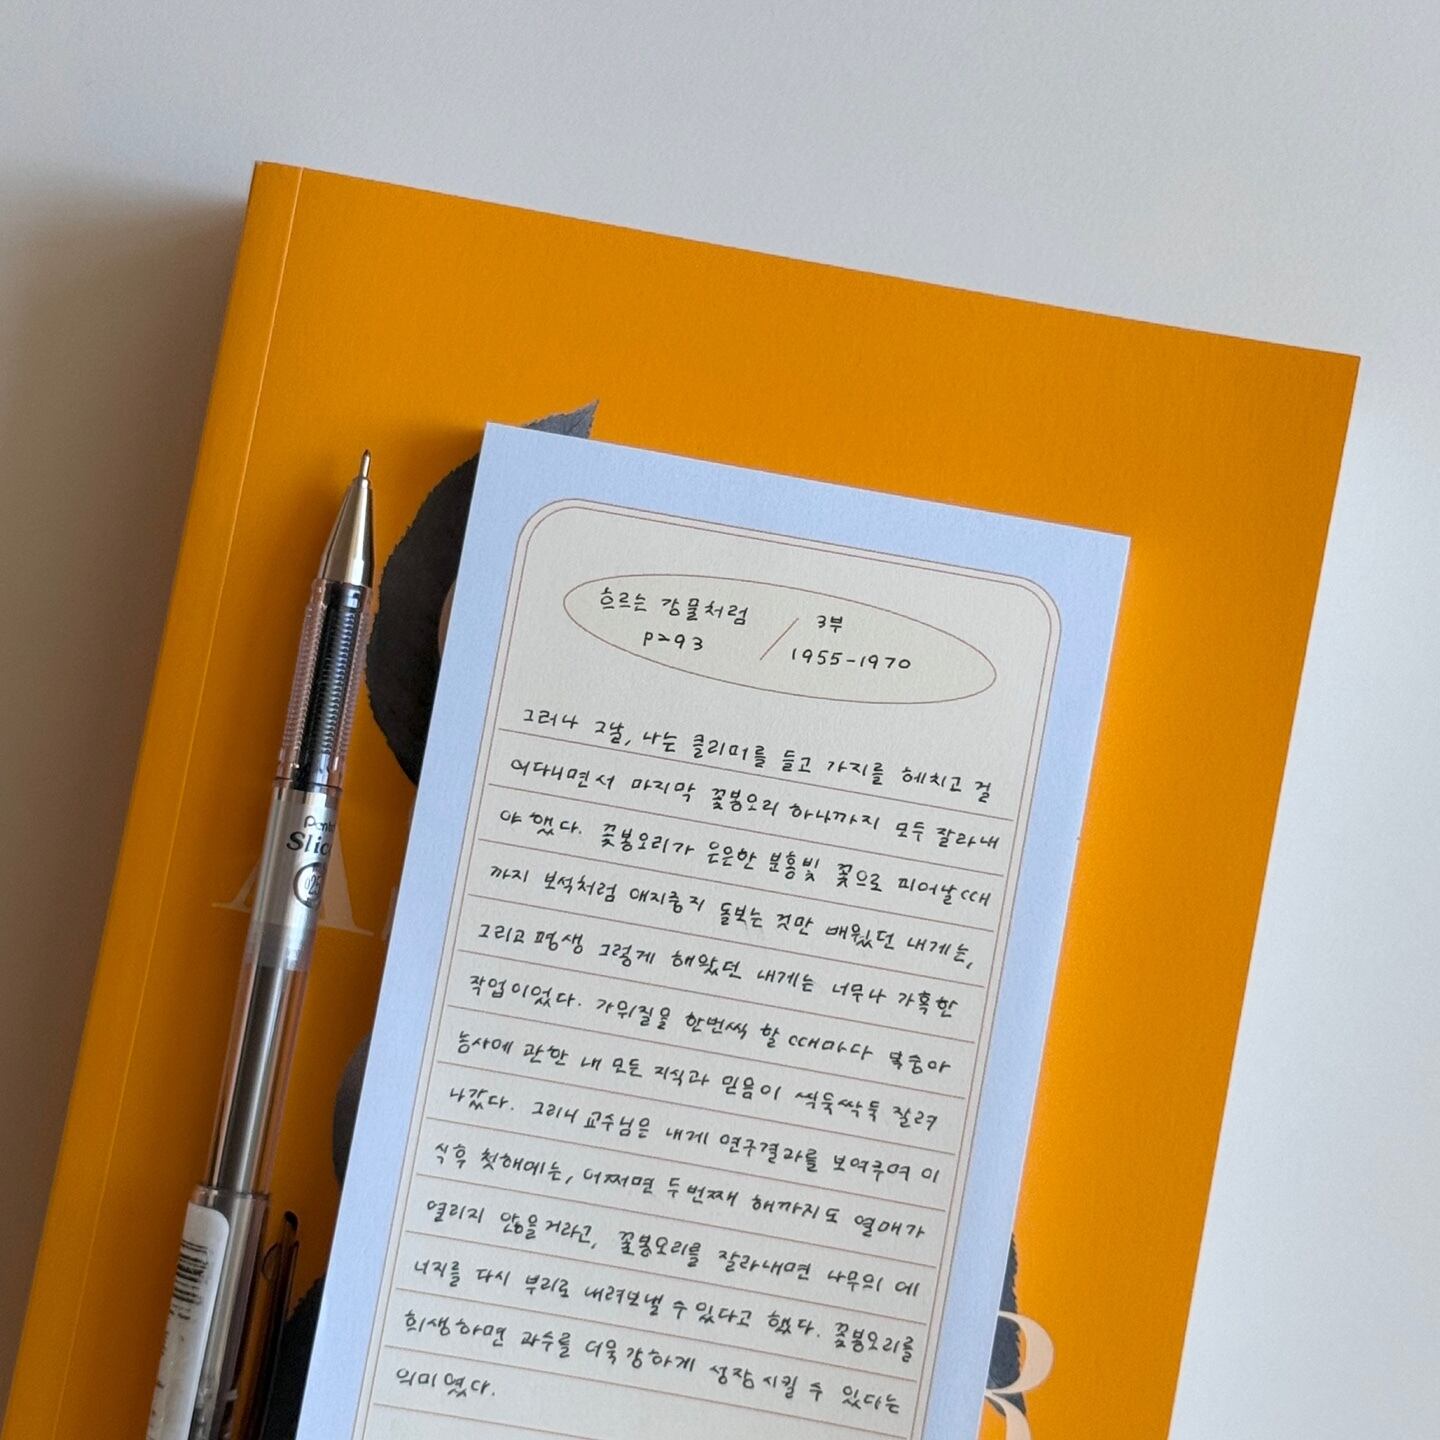 흐르는 강물처럼 / 3부
p293 1955-1970
그러나 그날, 나는 클리퍼를 들고 가지를 헤치고 걸
어다니면서 마지막 꽃봉오리 하나까지 모두 잘라내
야 했다. 꽃봉오리가 은은한 분홍빛 꽃으로 피어날 때
까지 보석처럼 애지중지 돌보는 것만 배웠던 내게는,
그리고 평생 그렇게 해왔던 내게는 너무나 가혹한
작업이었다. 가위질을 한번씩 할 때마다 복숭아
농사에 관한 내 모든 지식과 믿음이 썩둑썩둑 잘려
나갔다. 그리니 교수님은 내게 연구결과를 보여주며 이
식후 첫해에는, 어쩌면 두번째 해까지도 열매가
열리지 않을거라고, 꽃봉오리를 잘라내면 나무의 에
너지를 다시 뿌리로 내려보낼 수 있다고 했다. 꽃봉오리를
희생하면 과수를 더욱 강하게 성장시킬 수 있다는
의미였다.
Slicci
025
A